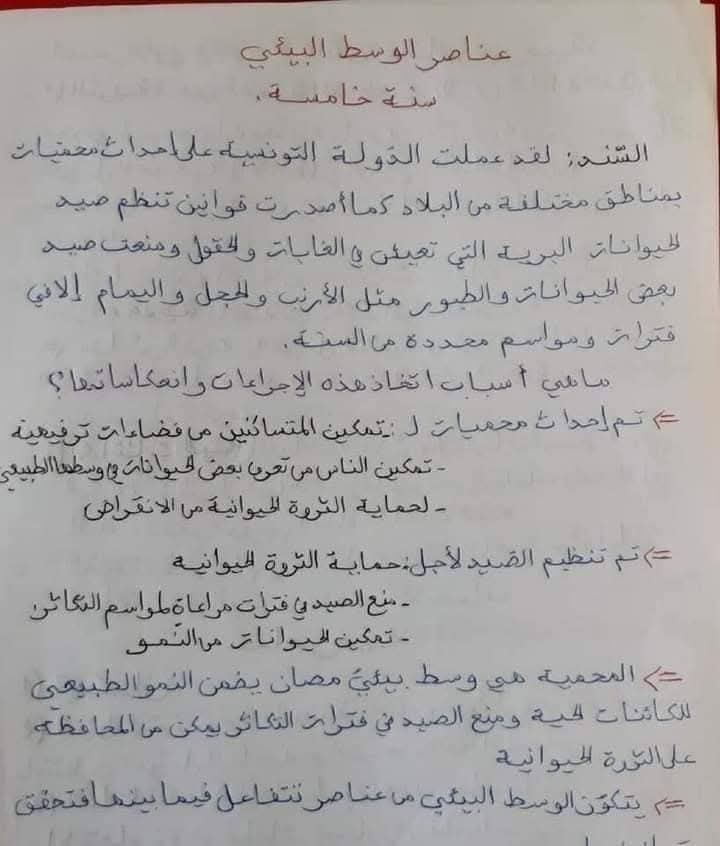 عناصر الوسط البيئي
سنة خامسة.
السّند: لقد عملت الدولة التونسية على إحداث محميات
بمناطق مختلفة من البلاد كما أصدرت قوانين تنظم صيد
الحيوانات البرية التي تعيش في الغابات والحقول ومنعت صيد
بعض الحيوانات والطيور مثل الأرنب والحجل واليمام إلا في
فترات ومواسم محددة من السنة.
ماهي أسباب اتخاذ هذه الإجراءات وانعكاساتها؟
⇐ تم إحداث محميات لـ: - تمكين المتساكنين من فضاءات ترفيهية
- تمكين الناس من تعرف بعض الحيوانات في وسطها الطبيعي
- لحماية الثروة الحيوانية من الانقراض
⇐ تم تنظيم الصيد لأجل: حماية الثروة الحيوانية
- منع الصيد في فترات مراعاة لمواسم التكاثر
- تمكين الحيوانات من النّمو
⇐ المحمية هي وسط بيئيّ مصان يضمن النمو الطبيعي
للكائنات الحية ومنع الصيد في فترات التكاثر يمكن من المحافظة
على الثروة الحيوانية
⇐ يتكوّن الوسط البيئي من عناصر تتفاعل فيما بينها فتحقق